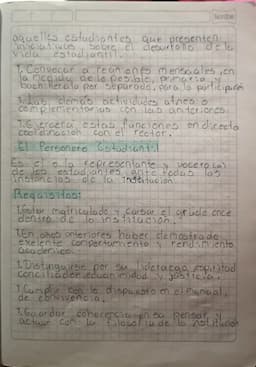 aquellos estudiantes que presenten
iniciativas sobre el desarrollo de la
vida estudiantil.
1. Convocar a reuniones mensuales, en
la medida de lo posible, primaria y
bachillerato por separado, para la participación
1. Las demás actividades afines o
complementarias con las anteriores.
1. Ejercerá estas funciones en directa
coordinación con el rector.
El Personero Estudiantil
Es el o la representante y vocero(a)
de los estudiantes ante todas las
instancias de la Institución.
Requisitos:
1. Estar matriculado y cursar el grado once
dentro de la institución.
1. En años anteriores haber demostrado
exelente comportamiento y rendimiento
académico.
1. Distinguirse por su liderazgo, espiritud
conciliador ecuanimidad y justicia.
1. Cumplir con lo dispuesto en el Manual
de convivencia.
1. Guardar coherencia en su pensar y
actuar con la filosofia de la institucion